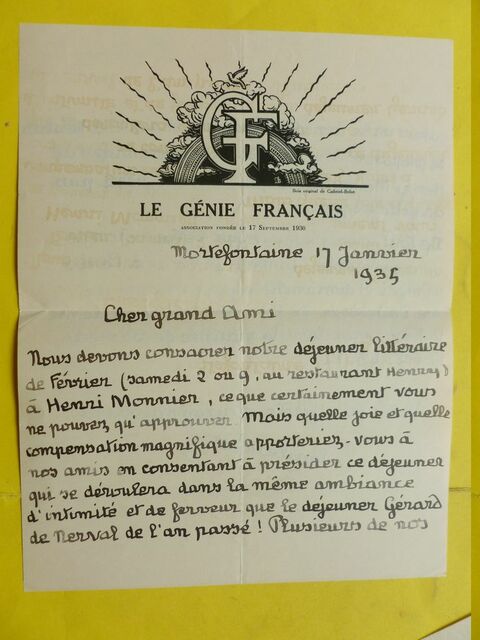 GF
Bois original de Gabriel-Belot
LE GÉNIE FRANÇAIS
ASSOCIATION FONDÉE LE 17 SEPTEMBRE 1930
Mortefontaine 17 Janvier
1935
Cher grand Ami
Nous devons consacrer notre déjeuner littéraire
de Février (samedi 2 ou 9, au restaurant Henry)
à Henri Monnier, ce que certainement vous
ne pouvez qu'approuver. Mais quelle joie et quelle
compensation magnifique apporteriez-vous à
nos amis en consentant à présider ce déjeuner
qui se déroulera dans la même ambiance
d'intimité et de ferveur que le déjeuner Gérard
de Nerval de l'an passé! Plusieurs de nos